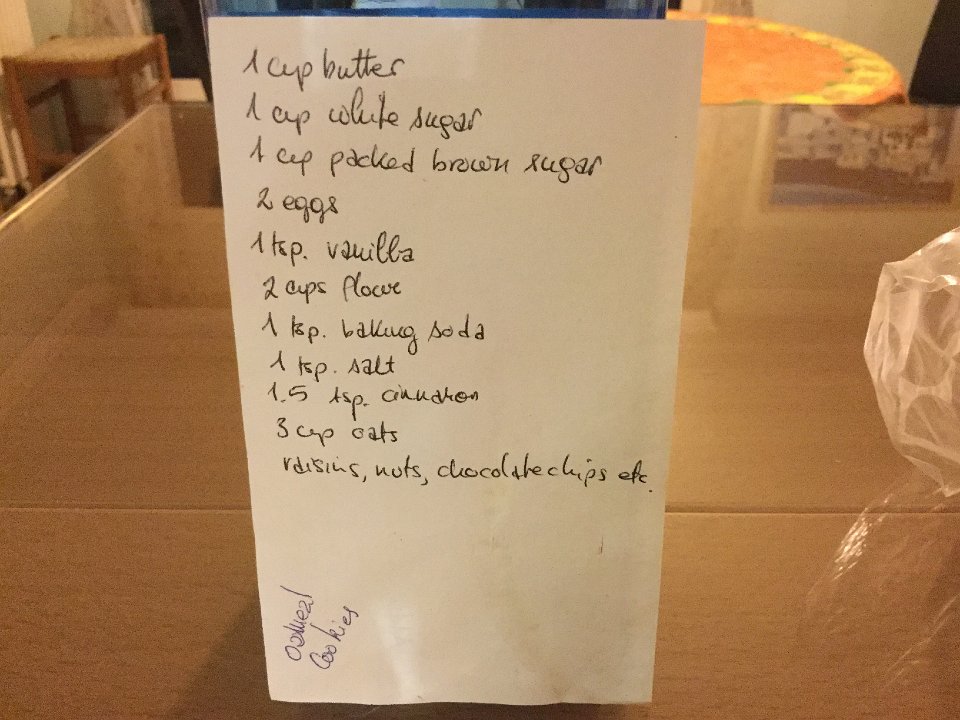 1 cup butter
1 cup white sugar
1 cup packed brown sugar
2 eggs
1 tsp. vanilla
2 cups flour
1 tsp. baking soda
1 tsp. salt
1.5 tsp. cinnamon
3 cup oats
raisins, nuts, chocolate chips etc.
Oatmeal
Cookies